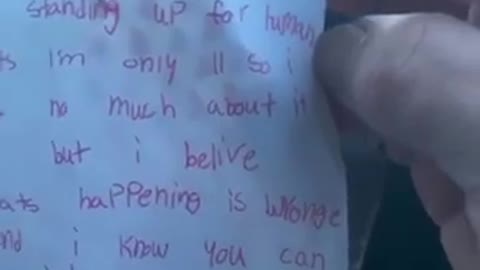 standing up for human
ts im only 11 so i
no much about it
but i belive
ats happening is wronge
nd i know you can